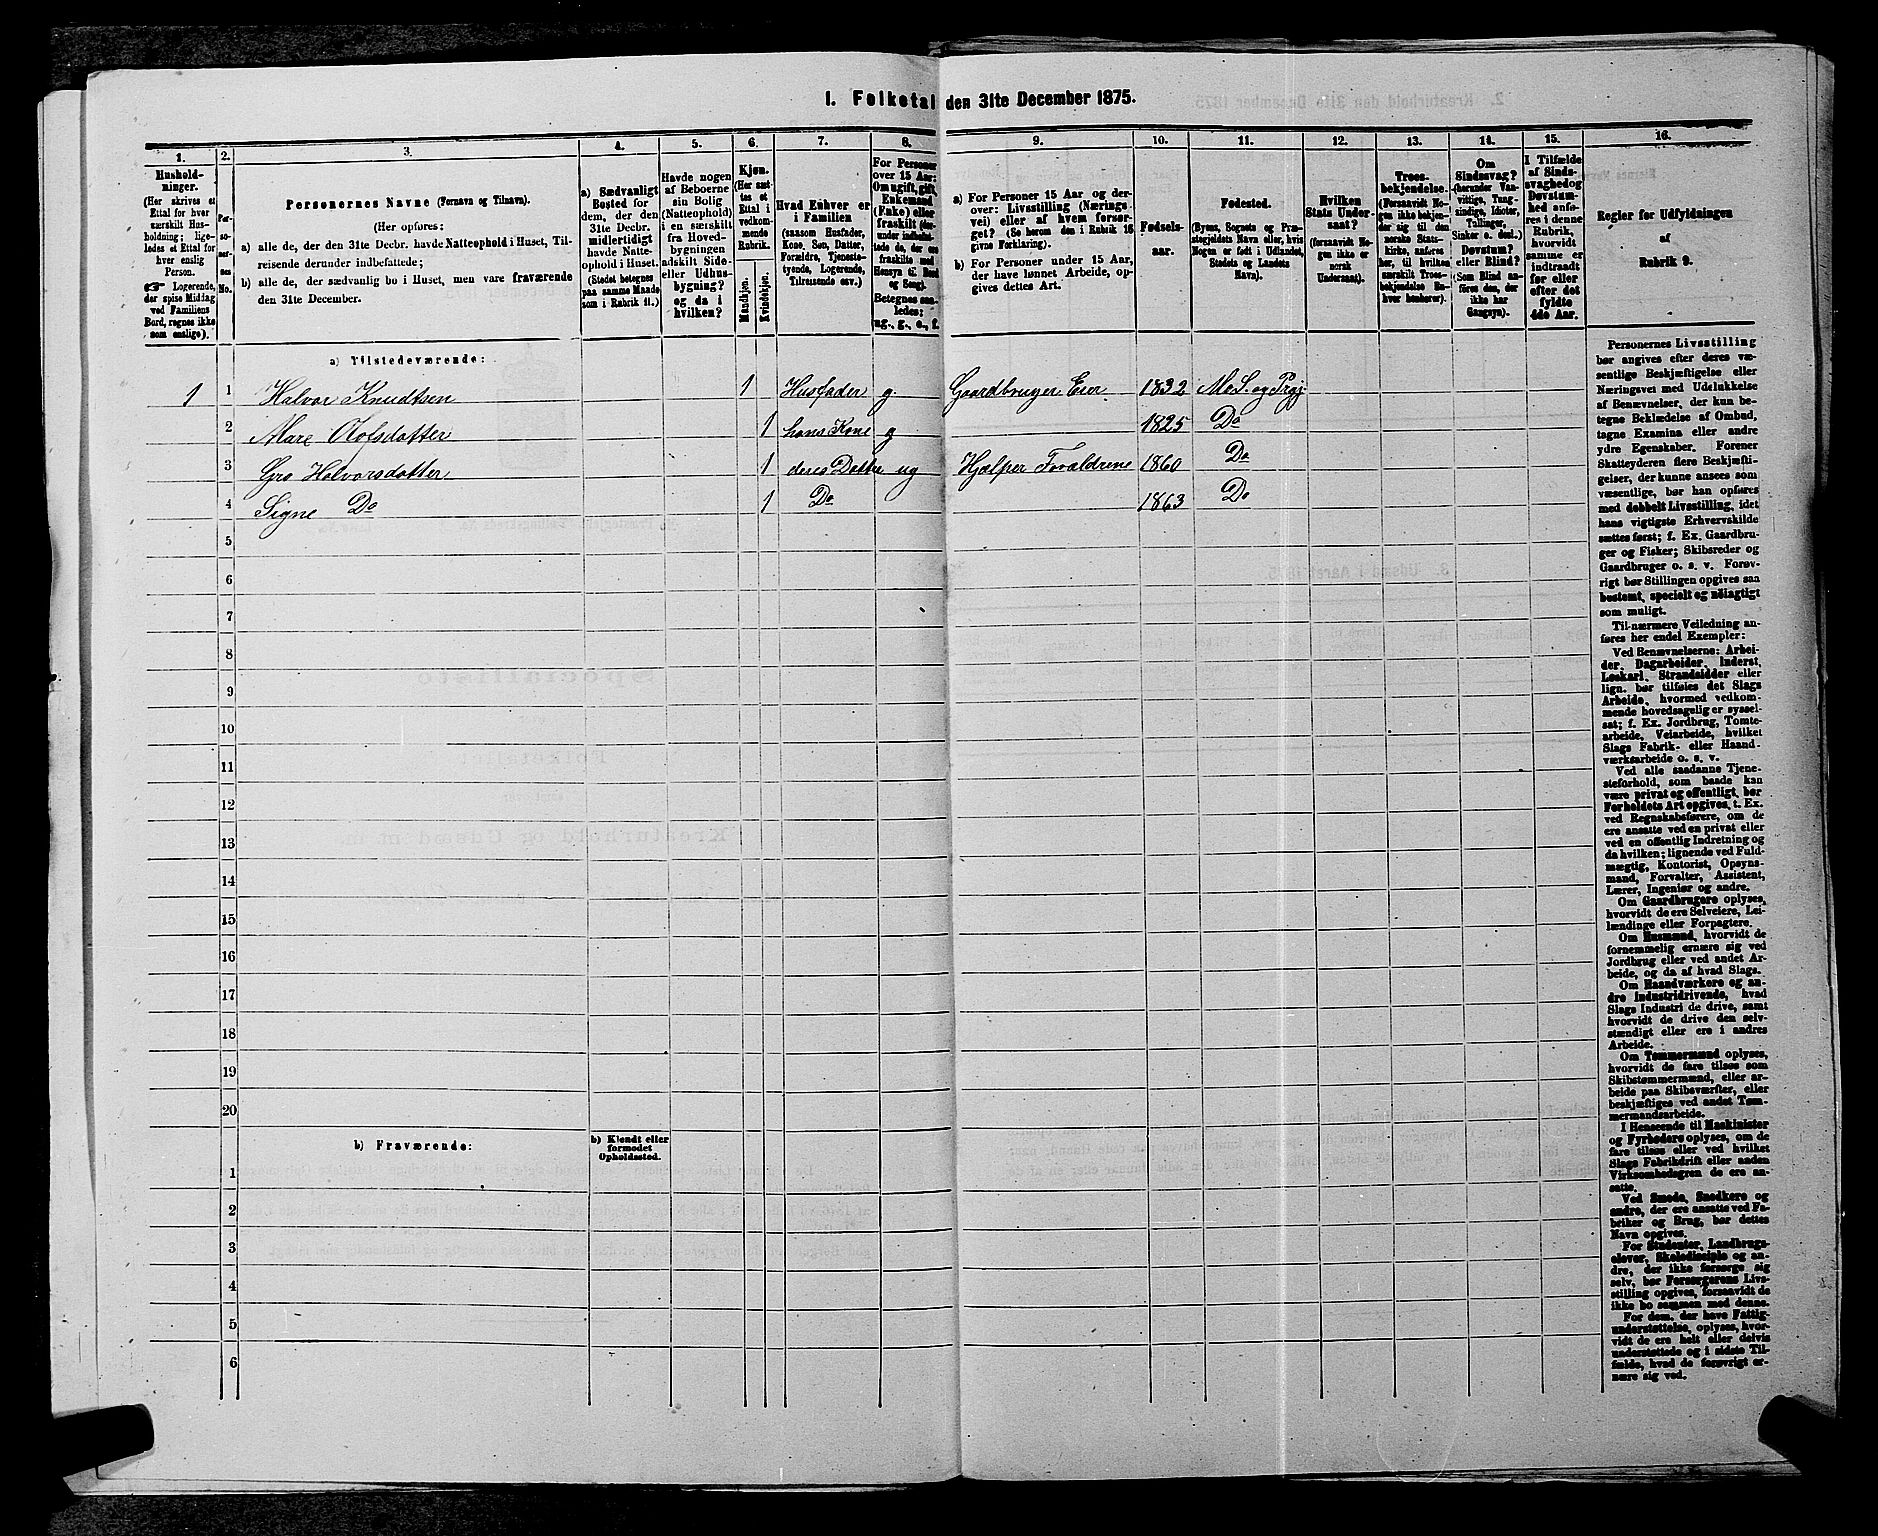 I. Folketal den 31te December 1875.
1. 2. 3. 4. 5. 6. 7. 8. 9. 10. 11. 12. 13. 14. 15. 16.
Hushold-
ninger.
(Her skrives et
Ettal for hver
særskilt Hus-
holdning; lige-
ledes et Ettal
for enslig
Person.
☞ Logerende,
der spise Middag
ved Familiens
Bord, regnes ikke
som enslige).
Per-
so-
ner-
nes
No.
Personernes Navne (Fornavn og Tilnavn).
(Her opføres:
a) alle de, der den 31te Decbr. havde Natteophold i Huset, Til-
reisende derunder indbefattede;
b) alle de, der sædvanlig bo i Huset, men vare fraværende
den 31te December.
a) Sædvanligt
Bosted for
dem, der den
31te Decbr.
midlertidigt
havde Natte-
ophold i Huset.
(Stedet betegnes
paa samme Maade
som i Rubrik 11.)
Havde nogen
af Beboerne
sin Bolig
(Natteophold)
i en særskilt
fra Hoved-
bygningen
adskilt Side-
eller Udhus-
bygning?
og da i
hvilken?
Kjøn.
(Her sæt-
tes et
Ettal i
vedkom-
mende
Rubrik.
Mandkjøn.
Kvindekjøn.
Hvad Enhver er
i Familien
(saasom Husfader,
Kone, Søn, Datter,
Forældre, Tjeneste-
tyende, Logerende,
Tilreisende osv.)
For Personer
over 15 Aar:
Om ugift, gift,
Enkemand
(Enke) eller
fraskilt (der-
under indbefat-
tede de, der ere
fraskilte med
Hensyn til Bord
og Seng).
Betegnes saa-
ledes:
ug., g., e., f.
a) For Personer 15 Aar og der-
over: Livsstilling (Nærings-
vei) eller af hvem forsør-
get? (Se herom den i Rubrik 16
givne Forklaring).
b) For Personer under 15 Aar,
der have lønnet Arbeide, op-
gives dettes Art.
Fødsels-
aar.
Fødested.
(Byens, Sognets og Præ-
stegjeldets Navn eller, hvis
Nogen er født i Udlandet,
Stedets og Landets
Navn).
Hvilken
Stats Under-
saat?
(forsaavidt No-
gen ikke er
norsk
Undersaat).
Troes-
bekjendelse.
(Forsaavidt No-
gen ikke bekjen-
der sig til den
norske Stats-
kirke, anføres
her, til hvilken
særskilt Troes-
bekjendelse En-
hver henhører).
Om
Sindssvag?
(herunder Van-
vittige, Tung-
sindige, Idioter,
Tullinger,
Sinker o. desl.)
Døvstum?
eller Blind?
(Som Blind an-
føres den, der
ikke har
Gangsyn).
I Tilfælde
af Sinds-
svaghed og
Døvstum-
hed anfø-
res i denne
Rubrik,
hvorvidt
samme er
indtraadt
før eller
efter det
fyldte
4de Aar.
Regler for Udfyldningen
af
Rubrik 9.
a) Tilstedeværende:
1 1 Halvor Knudtsen 1 Husfader g. Gaardbruger Eier. 1832 M. S. og Prgj
2 Mare Olsdatter 1 hans Kone g 1825 Do
3 Gro Halvorsdatter 1 deres Datter ug Hjælper Forældrene 1860 Do
4 Signe Do 1 Do 1863 Do
5
6
7
8
9
10
11
12
13
14
15
16
17
18
19
20
b) Fraværende:
b) Kjendt eller
formodet
Opholdssted.
1
2
3
4
5
6
Personernes Livsstilling
bør angives efter deres væ-
sentlige Beskjæftigelse eller
Næringsvei med Udelukkelse
af Benævnelser, der kun be-
tegne Beklædelse af Ombud,
tagne Examina eller andre
ydre Egenskaber. Forener
Skatteyderen flere Beskjæfti-
gelser, der kunne ansees som
væsentlige, bør han opføres
med dobbelt Livsstilling, idet
hans vigtigste Erhvervskilde
sættes først; f. Ex. Gaardbru-
ger og Fisker; Skibsreder og
Gaardbruger o. s. v. Forøv-
rigt bør Stillingen opgives saa
bestemt, specielt og nøiagtigt
som muligt.
Til nærmere Veiledning an-
føres her endel Exempler:
Ved Benævnelserne: Arbei-
der, Dagarbeider, Inderst,
Løskarl, Strandsidder eller
lign. bør tilføies det Slags
Arbeide, hvormed vedkom-
mende hovedsagelig er syssel-
sat; f. Ex. Jordbrug, Tomte-
arbeide, Veiarbeide, hvilket
Slags Fabrik- eller Haand-
værksarbeide o. s. v.
Ved alle saadanne Tjene-
steforhold, som baade kan
være privat og offentligt, bør
Forholdets Art opgives, t. Ex.
ved Regnskabsførere, om de
ere ansatte ved en privat eller
ved en offentlig Indretning og
da hvilken; lignende ved Fuld-
mægtig, Kontorist, Opsyns-
mand, Forvalter, Assistent,
Lærer, Ingeniør og andre.
Om Gaardbrugere oplyses,
hvorvidt de ere Selveiere, Lei-
lændinge eller Forpagtere.
Om Husmænd, hvorvidt de
fornemmelig ernære sig ved
Jordbrug eller ved andet Ar-
beide, og da af hvad Slags.
Om Haandværkere og an-
dre Industridrivende, hvad
Slags Industri de drive, samt
hvorvidt de drive den selv-
stændigt eller ere i andres
Arbeide.
Om Tømmermænd oplyses,
hvorvidt de fare tilsøs som
Skibstømmermænd, eller ar-
beide paa Skibsværfter, eller
beskjæftiges ved andet Tøm-
mermandsarbeide.
I Henseende til Maskinister
og Fyrbødere oplyses, om de
fare tilsøs eller ved hvilket
Slags Fabrikdrift eller anden
Virksomhedsgren de ere an-
satte.
Ved Smede, Snedkere og
andre, der ere ansatte ved Fa-
briker og Brug, bør dettes
Navn opgives.
For Studenter, Landbrugs-
elever, Skoledisciple og an-
dre, der ikke forsørge sig
selv, bør Forsørgerens Livs-
stilling opgives, forsaavidt de
ikke bo sammen med denne.
For dem, der have Fattig-
understøttelse, oplyses, hvor-
vidt de ere helt eller delvis
understøttede og i sidste Til-
fælde, hvad de forøvrigt er-
nære sig ved.